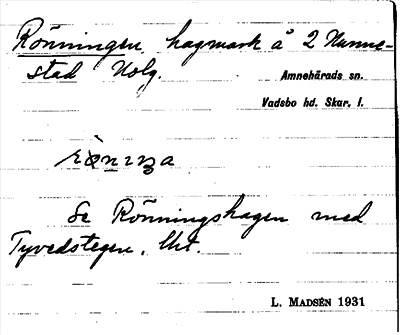 Rönningen, hagmark å 2 Nunne-
stad Nolg.
Amnehärads sn.
Vadsbo hd. Skar. l.
Se Rönningshagen med
Tyvedstegen, Uht.
L. MADSÉN 1931